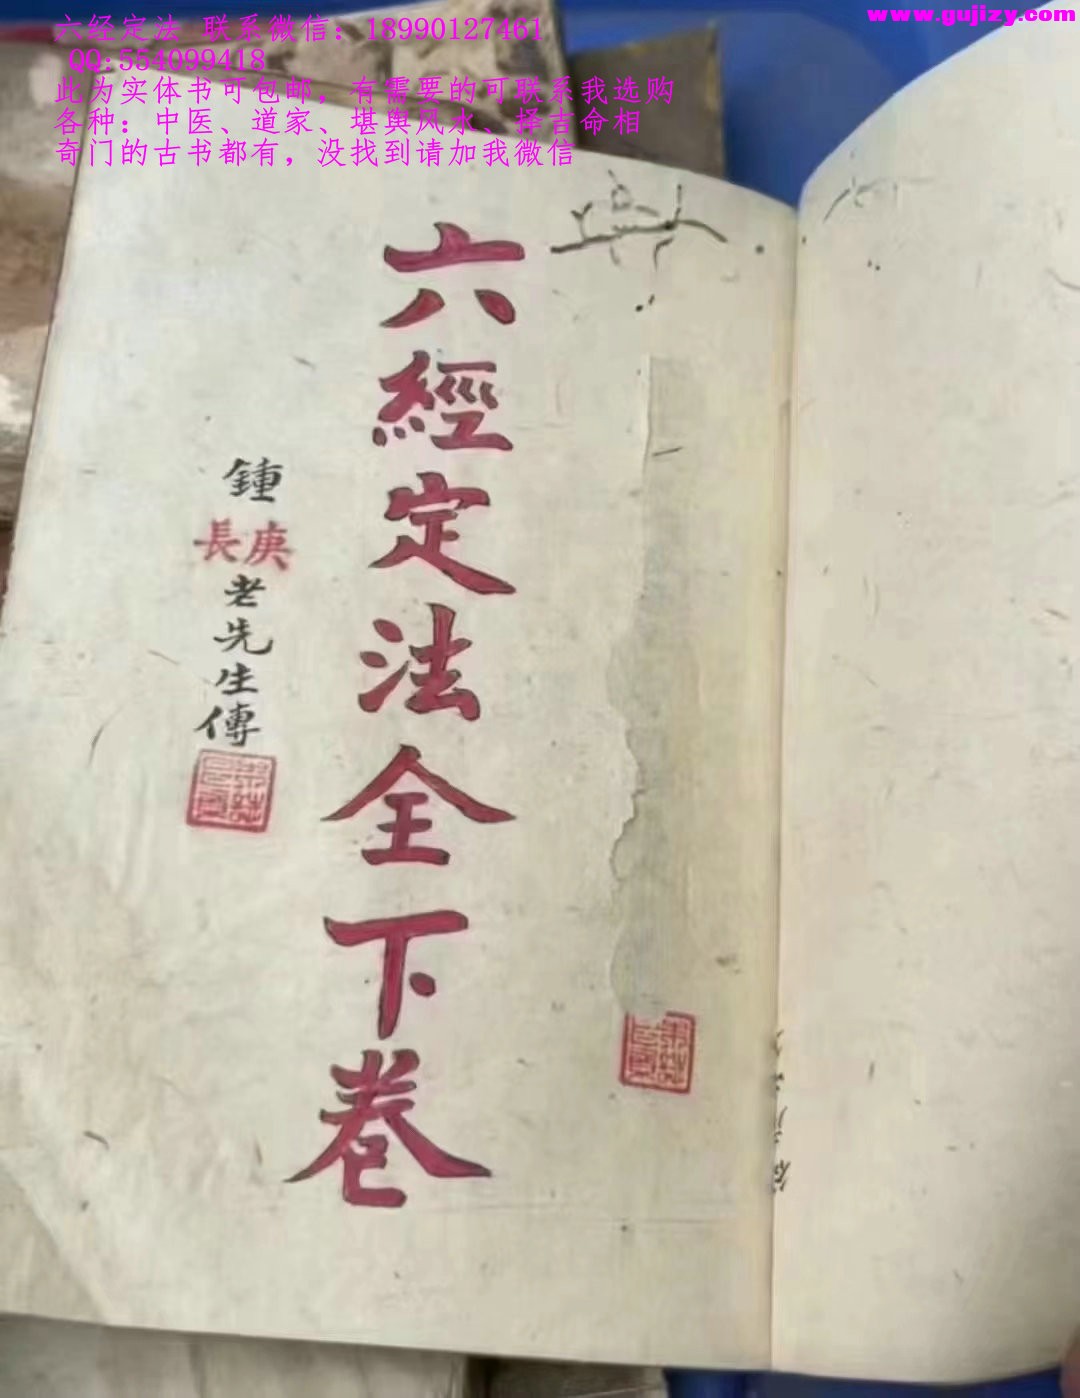 六经定法 联系微信：18990127461
QQ:554099418
此为实体书可包邮，有需要的可联系我选购
各种：中医、道家、堪舆风水、择吉命相
奇门的古书都有，没找到请加我微信
www.gujizy.com
六經定法全下卷
鍾庚長老先生傳